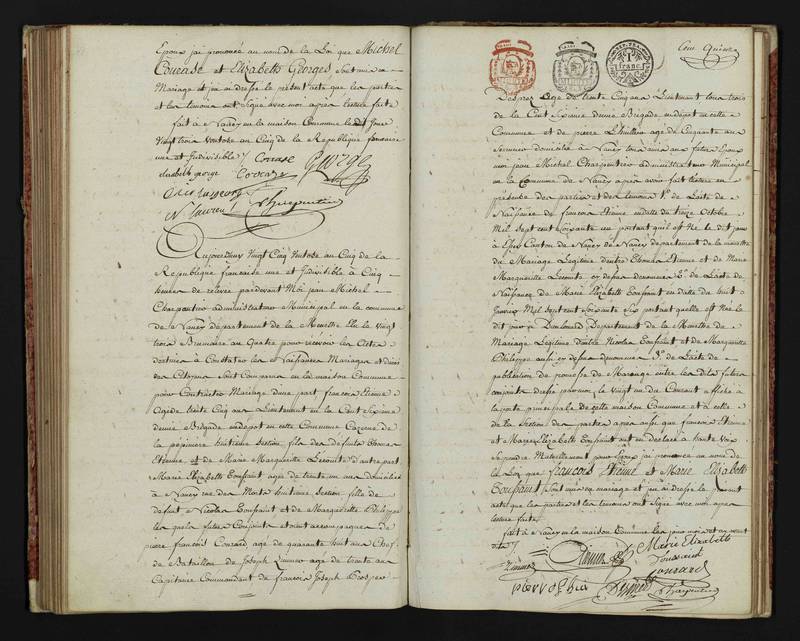 Epoux j'ai prononcé au nom de la Loi que Michel
Courase et Elizabeth Georges, sont unis en
Mariage et j'ai dressé le présent acte que les parties
et les temoins ont signé avec moi après lecture faite
fait à Nancy en la maison Commune le dit Jour
Vingt trois Ventose an Cinq de la Republique francaise
une et Indivisible
elisabelh george
Charpentier
Aujourdhuy Vingt Cinq Ventose an Cinq de la
Republique francaise une et Indivisible à Cinq
heures de relevée pardevant Moi jean Michel
Charpentier administrateur Municipal en la commune
de Nancy departement de la Meurthe Elu le Vingt
trois Brumaire an Quatre pour recevoir les Actes
destinés à Constater les Naissances Mariages et décès
des Citoyens sont Comparus en la maison Commune
pour Contracter Mariage d'une part françois Etienne
Agé de trente Cinq ans Lieutenant en la Cent Sixieme
demie Brigade en dépot en cette Commune Cazerne de
la pepiniere huitieme Section, fils des defunts Thomas
Etienne et de Marie Marguerite Lecomte d'autre part
Marie Elizabeth Toussaint agée de trente un ans domiciliée
à Nancy rue des Morts huitieme Section fille de
defunt Nicolas Toussaint et de Marguerite Philippe
les quels futurs Conjoints etoient accompagnés de
pierre françois Conrard, agé de quarante huit ans Chef
de Bataillon de Joseph agé de trente un
Capitaine Commandant de françois Joseph Prosper
1
franc
Cent Quinze
Desprez agé de trente Cinq ans Lieutenant tous trois
de la Cent Sixieme demie Brigade en dépot en cette
Commune et de pierre Lhuillier agé de Cinquante ans
domicilié à Nancy
moi jean Michel Charpentier administrateur Municipal
en la Commune de Nancy après avoir fait lecture en
présence des parties et des temoins 1º. de l'acte de
Naissance de françois Etienne en datte du treize Octobre
Mil Sept cent Soixante un portant qu'il est Né le dit jour
à Canton de Nancy departement de la meurthe
du Mariage Légitime d'entre Thomas Etienne et de Marie
Marguerite Lecomte cy dessus denommés 2º. de l'acte de
Naissance de Marie Elizabeth Toussaint en date du huit
Janvier Mil Sept cent Soixante Six portant qu'elle est Née le
dit jour à Departement de la Meurthe du
Mariage Légitime d'entre Nicolas Toussaint et de Marguerite
Philippe aussi cy dessus denommés 3º. de l'acte de
publication de promesse de Mariage entre les dits futurs
conjoints dressé par moi le vingt un du Courant affiché à
la porte principale de cette maison Commune et à celle
de la Section des parties après aussi que francois Etienne
et Marie Elizabeth Toussaint ont eu déclaré à haute Voix
Se prendre Mutuellement pour Epoux j'ai prononcé au nom de
la Loi que francois Etienne et Marie Elizabeth
Toussaint, sont unis en mariage et j'ai dressé le présent
acte que les parties et les temoins ont signé avec moi après
lecture faite
fait à Nancy en la maison Commune les jour mois et an avant
dits
Marie Elizabeth
Toussaint
Conrard
Charpentier